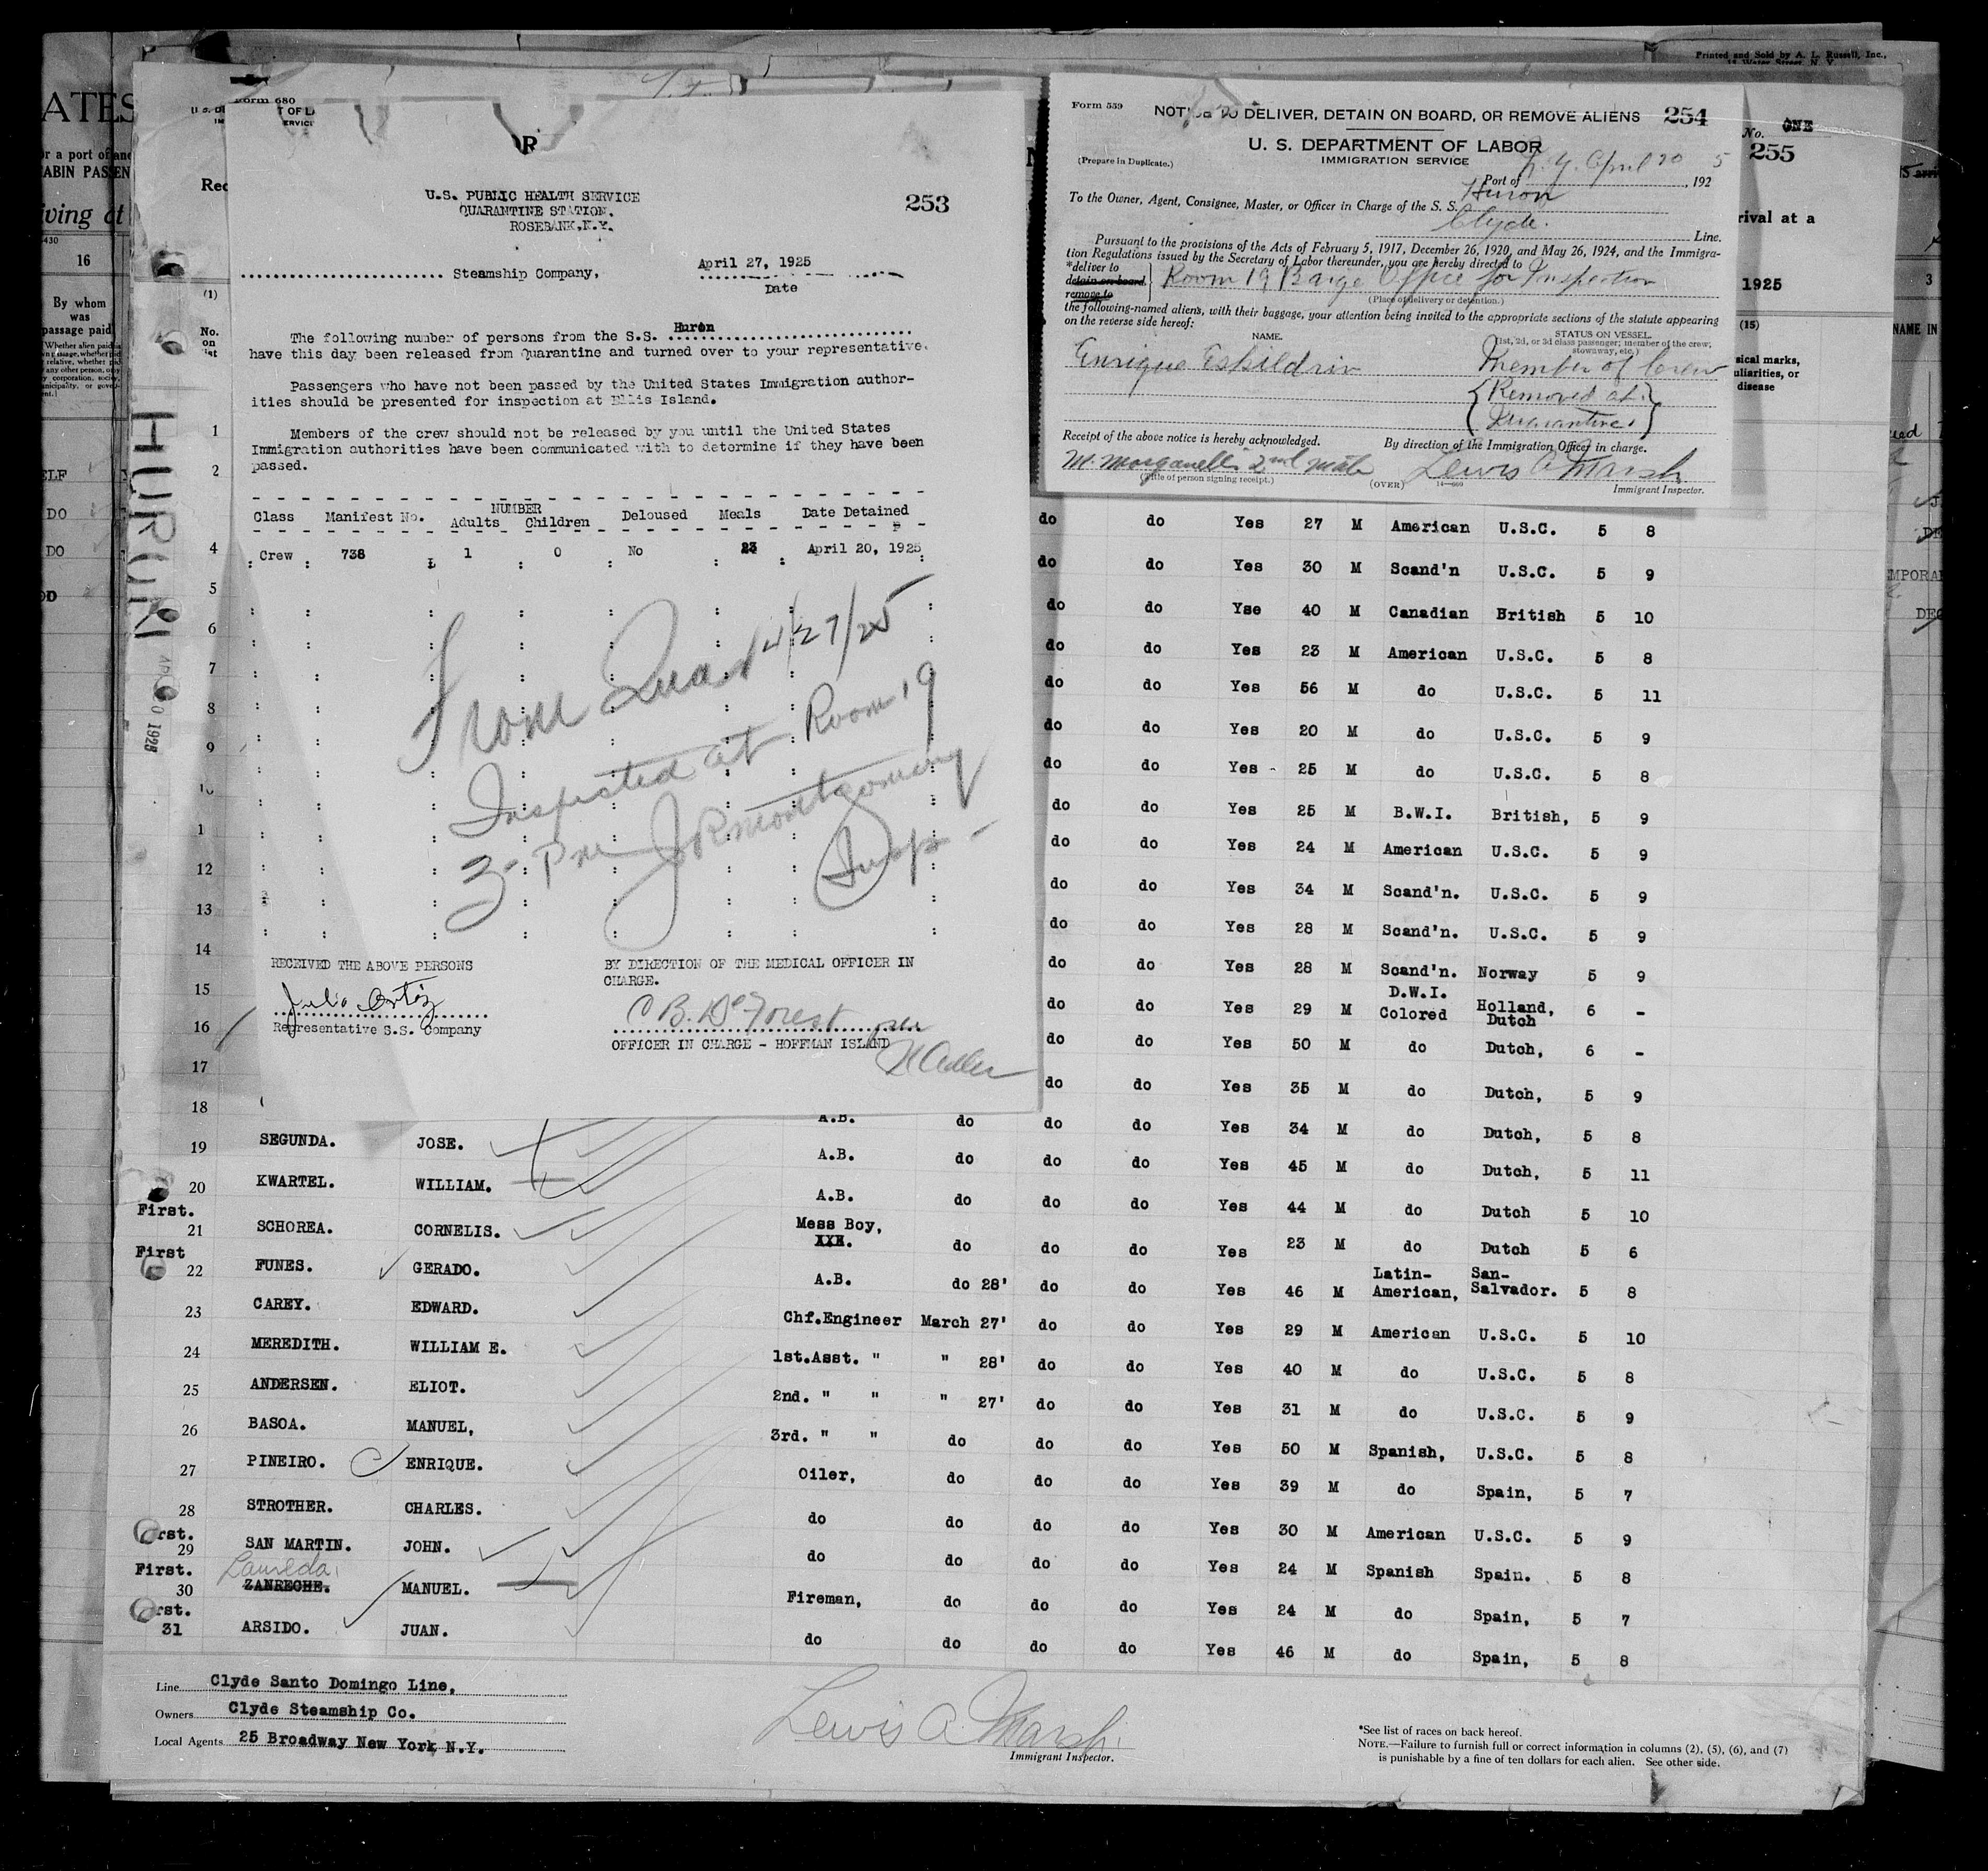 Printed and Sold by A. L. Russell, Inc.,
ATES
or a port of
ABIN PASSEN
iving at
430
16
By whom
was
passage paid
HURON
Form 680
Rec
(1)
No.
on
U.S. PUBLIC HEALTH SERVICE
QUARANTINE STATION.
ROSEBANK,N.Y.
253
Steamship Company,
April 27, 1925
Date
The following number of persons from the S.S. Huron
have this day been released from Quarantine and turned over to your representative.
Passengers who have not been passed by the United States Immigration author-
ities should be presented for inspection at Ellis Island.
Members of the crew should not be released by you until the United States
Immigration authorities have been communicated with to determine if they have been
passed.
NUMBER
Class Manifest No. Adults Children Deloused Meals Date Detained
Crew 738 1 0 No 23 April 20, 1925
From Quar 4/27/25
Inspected at Room 19
3- Pm JR Montgomery
Insp-
RECEIVED THE ABOVE PERSONS
Julio Ortiz
Representative S.S. Company
BY DIRECTION OF THE MEDICAL OFFICER IN
CHARGE.
C B. De Forest per
OFFICER IN CHARGE - HOFFMAN ISLAND
Form 559
NOTICE TO DELIVER, DETAIN ON BOARD, OR REMOVE ALIENS 254
U. S. DEPARTMENT OF LABOR
(Prepare in Duplicate.)
IMMIGRATION SERVICE
Port of N.Y. April 20, 1925
To the Owner, Agent, Consignee, Master, or Officer in Charge of the S. S. Huron
Clyde. Line.
Pursuant to the provisions of the Acts of February 5, 1917, December 26, 1920, and May 26, 1924, and the Immigra-
tion Regulations issued by the Secretary of Labor thereunder, you are hereby directed to
*deliver to
detain on board
remove to
Room 19 Barge Office for Inspection
(Place of delivery or detention.)
the following-named aliens, with their baggage, your attention being invited to the appropriate sections of the statute appearing
on the reverse side hereof:
NAME.
STATUS ON VESSEL.
(1st, 2d, or 3d class passenger; member of the crew;
stowaway, etc.)
Enrique Eskildrin Member of Crew
Removed at
Quarantine.
Receipt of the above notice is hereby acknowledged.
By direction of the Immigration Officer in charge.
M. Morganelli 2nd Mate
Lewis A Marsh
(Title of person signing receipt.)
(OVER)
Immigrant Inspector.
No. ONE
255
rival at a
1925
(15)
sical marks,
uliarities, or
disease
3
NAME IN
1
2
4
5
6
7
8
9
12
13
14
15
16
17
18
do do Yes 27 M American U.S.C. 5 8
do do Yes 30 M Scand'n U.S.C. 5 9
do do Yse 40 M Canadian British 5 10
do do Yes 23 M American U.S.C. 5 8
do do Yes 56 M do U.S.C. 5 11
do do Yes 20 M do U.S.C. 5 9
do do Yes 25 M do U.S.C. 5 8
do do Yes 25 M B.W.I. British, 5 9
do do Yes 24 M American U.S.C. 5 9
do do Yes 34 M Scand'n. U.S.C. 5 9
do do Yes 28 M Scand'n. U.S.C. 5 9
do do Yes 28 M Scand'n. Norway 5 9
do do Yes 29 M D.W.I. Colored Holland, Dutch 6 -
do do Yes 50 M do Dutch, 6 -
do do Yes 35 M do Dutch, 5 9
A.B. do do do Yes 34 M do Dutch, 5 8
19 SEGUNDA. JOSE. A.B. do do do Yes 45 M do Dutch, 5 11
20 KWARTEL. WILLIAM. A.B. do do do Yes 44 M do Dutch 5 10
First.
21 SCHOREA. CORNELIS. Mess Boy, XXX. do do do Yes 23 M do Dutch 5 6
First
22 FUNES. GERADO. A.B. do 28' do do Yes 46 M Latin-American, San-Salvador. 5 8
23 CAREY. EDWARD. Chf.Engineer March 27' do do Yes 29 M American U.S.C. 5 10
24 MEREDITH. WILLIAM E. 1st.Asst. " " 28' do do Yes 40 M do U.S.C. 5 8
25 ANDERSEN. ELIOT. 2nd. " " " 27' do do Yes 31 M do U.S.C. 5 9
26 BASOA. MANUEL, 3rd. " " do do do Yes 50 M Spanish, U.S.C. 5 8
27 PINEIRO. ENRIQUE. Oiler, do do do Yes 39 M do Spain, 5 7
28 STROTHER. CHARLES. do do do do Yes 30 M American U.S.C. 5 9
rst.
29 SAN MARTIN. JOHN. do do do do Yes 24 M Spanish Spain. 5 8
First. Laureda
30 ZANRECHE. MANUEL. Fireman, do do do Yes 24 M do Spain, 5 7
rst.
31 ARSIDO. JUAN. do do do do Yes 46 M do Spain, 5 8
Line Clyde Santo Domingo Line,
Owners Clyde Steamship Co.
Local Agents 25 Broadway New York N.Y.
Lewis A. Marsh
Immigrant Inspector.
*See list of races on back hereof.
NOTE.—Failure to furnish full or correct information in columns (2), (5), (6), and (7)
is punishable by a fine of ten dollars for each alien. See other side.